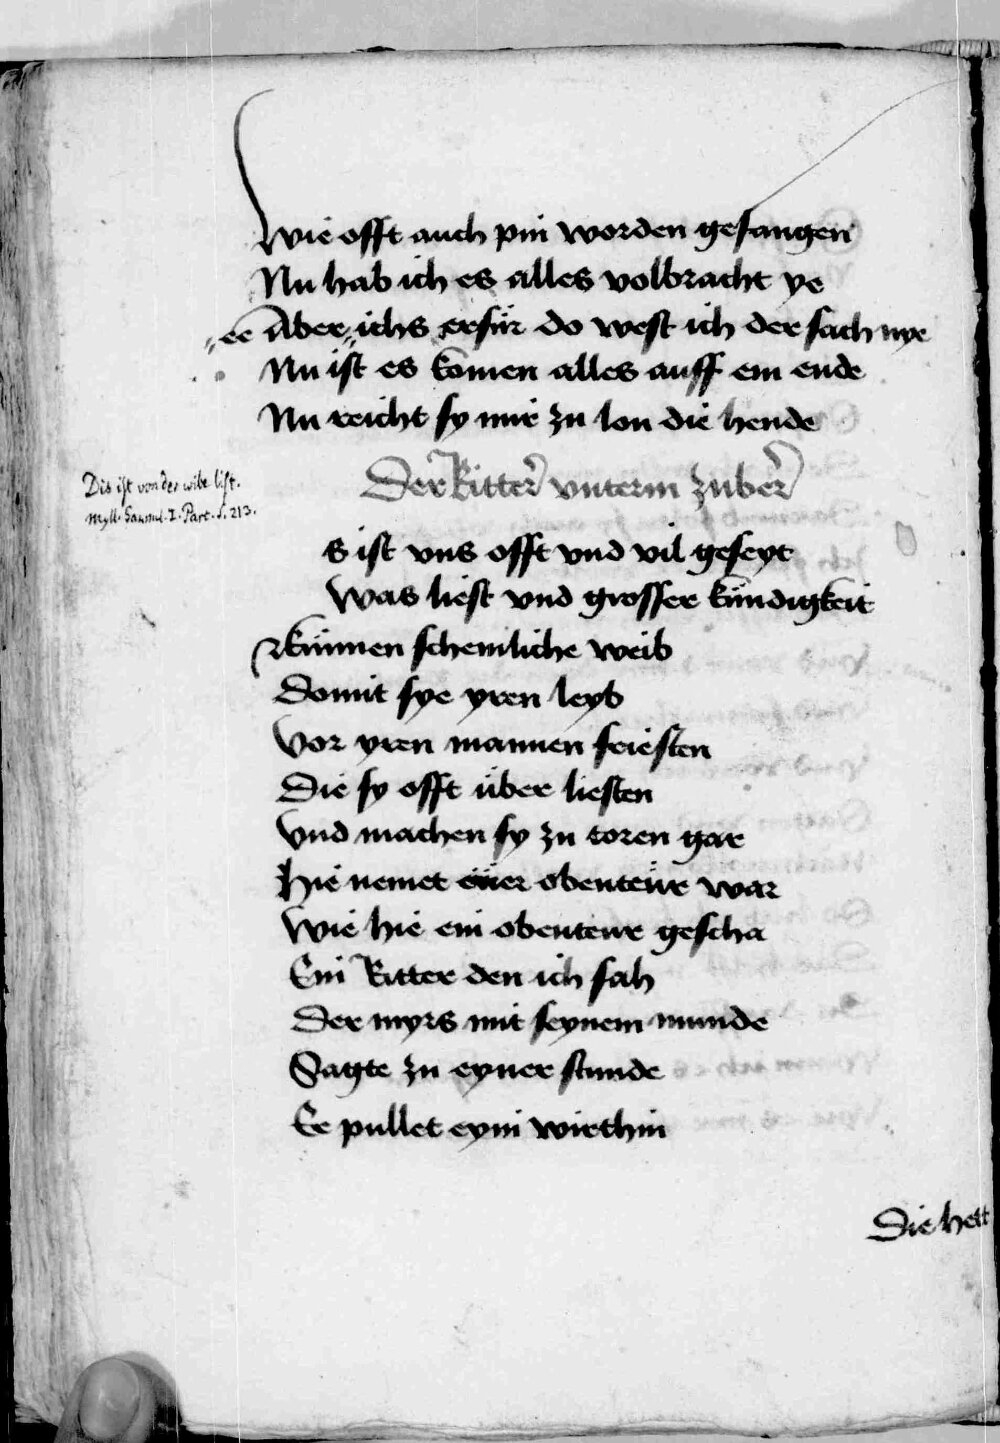 Wie offt auch pin worden gefangen
Nu hab ich es alles volbracht ye
ee Aber ichs erfür do west ich der sach nye
Nu ist es komen alles auff ein ende
Nu reicht sy mir zu lon die hende
Der Ritter vnterm zuber
Dis ist von der wibe list.
Myll. Samml. I. Part. S. 213.
s ist vns offt vnd vil geseyt
Was liest vnd grosser kündigkeit
künnen schemliche weib
Domit sye yren leyb
Vor yren mannen friesten
Die sy offt über liesten
Vnd machen sy zu toren gar
Hie nemet obenteür war
Wie hie ein obentewr gescha
Ein Ritter den ich sah
Der myrs mit seynem munde
Sagte zu eyner stunde
Er pullet eyn wirthin
Die hett